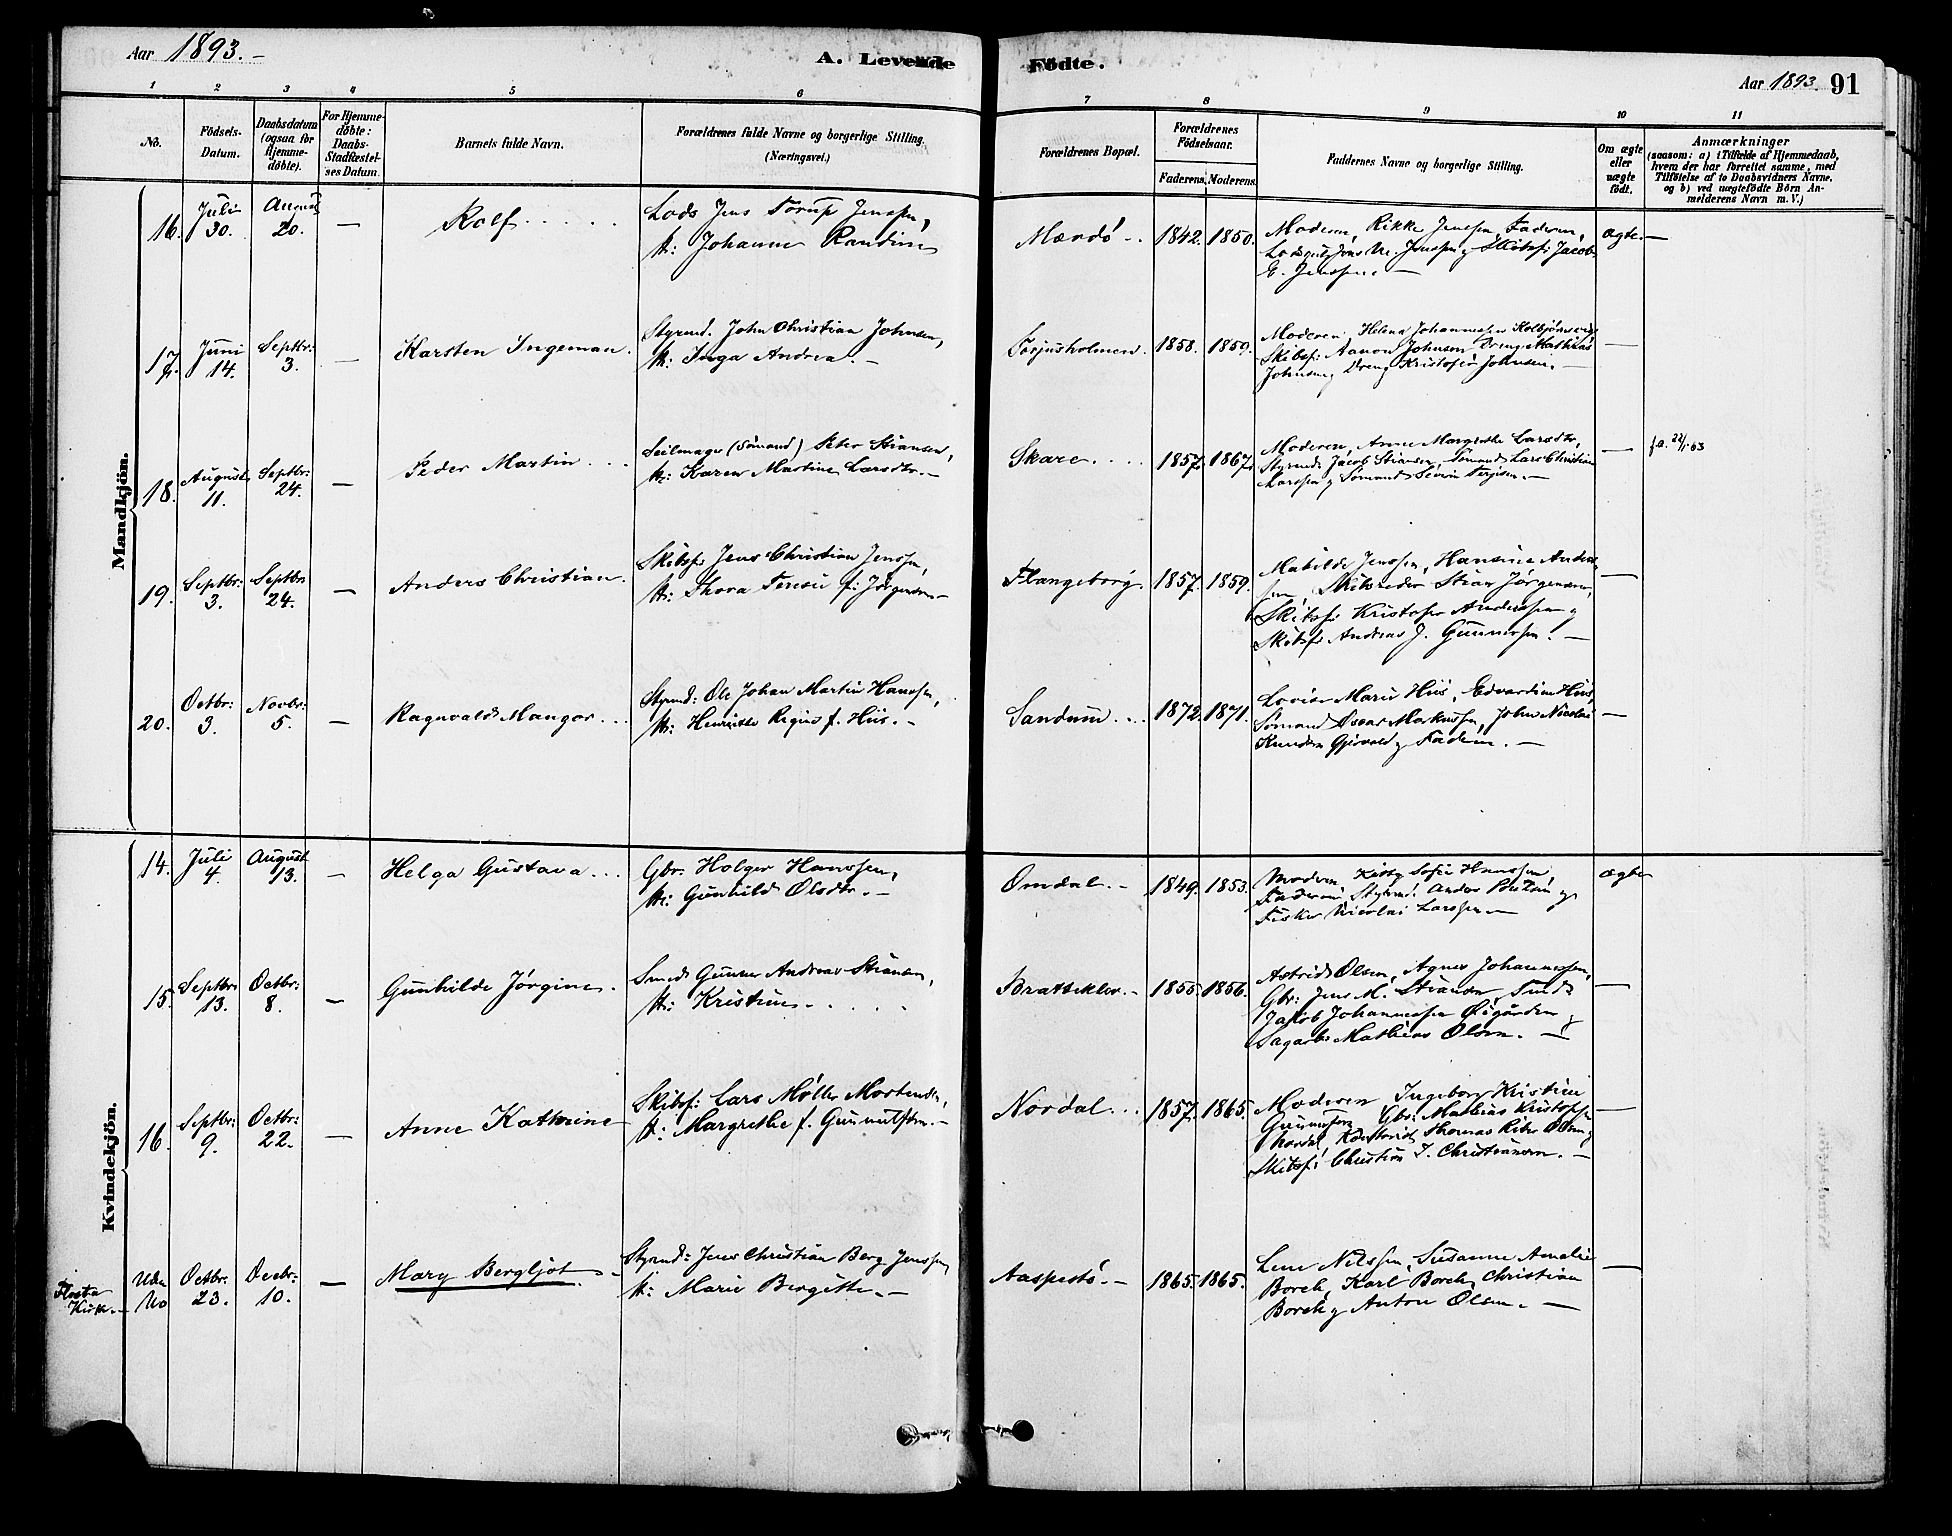 Aar 1893.-
A. Levende
Födte.
Aar 1893. 91
1 2 3 4 5 6 7 8 9 10 11
No.
Födsels-
Datum.
Daabsdatum
(ogsaa for
Hjemme-
døbte).
For Hjemme-
døbte:
Daabs-
Stadfæstel-
ses Datum.
Barnets fulde Navn.
Forældrenes fulde Navne og borgerlige Stilling.
(Næringsvei.)
Forældrenes Bopæl.
Forældrenes
Födselsaar.
Faderens. Moderens.
Faddernes Navne og borgerlige Stilling.
Om ægte
eller
uægte
födt.
Anmærkninger
(saasom: a) i Tilfælde af Hjemmedaab,
hvem der har forrettet samme, med
Tilföielse af to Daabsvidners Navne,
og b) ved uægtefödte Börn An-
melderens Navn m. V.)
Mandkjön.
16. Juli 30. August 20. — Rolf
Lods Jens Torup Jenssen,
H: Johanne Randine
Mærdö 1842. 1850.
Moderen, Rikke Jenssen, Faderen,
Jenssen Skibsf: Jacob
E. Jenssen. —
ægte. —
17. Juni 14. Septbr: 3. — Karsten Ingeman.
Styrmd. John Christian Johnsen,
H: Inga Andrea. —
Torjusholmen. 1858. 1859.
Moderen, Helena Johannesen
Skibsf: Aanon Johnsen Dreng Mathias
Johnsen Dreng Kristofer Johnsen. —
—
18. August 11. Septbr: 24. — Peder Martin
Seilmager (Sömand) Peter Stiansen,
H: Karen Martine Larsdtr. —
Skare. 1857. 1867.
Moderen, Anne Margrethe Larsdtr,
Styrmd: Jacob Stiansen, Sömand Lars Christian
Larssen Sömand Severin Terjesen. —
— f.a. 22/1 03
19. Septbr: 3. Septbr 24. — Anders Christian.
Skibsf: Jens Christian Jenssen,
H: Thora Teresie f: Jörgensen —
Flangeborg. 1857. 1859.
Mathilde Jenssen, Hansine Anders-
sen, Skibsreder Stian Jörgensen,
Skibsf: Kristofer Anderssen
Skibsf: Andreas J. Gunnersen. —
—
20. Octbr: 3. Novbr: 5. — Ragnvald Mangor
Styrmd: Ole Johan Martin Hanssen,
H: Henriette Regine f. Hiis. —
Sandum 1872. 1871.
Lovise Marie Hiis, Edvardine Hiis,
Sömand Oscar Markussen, John Nicolai
Knudsen Gjervold Faderen. —
—
Kvindekjön.
14. Juli 4. August 13. — Helga Gustava
Gbr. Holger Hanssen,
H: Gunhild Olsdtr. —
Omdal. — 1849. 1853.
Moderen, Sofie Hanssen,
Faderen, Styrmd: Anders
Fisker Nicolai Larssen —
ægte
15. Septbr: 13. Octbr: 8. — Gunhilde Jörgine.
Smed Gunner Andreas Stiansen,
H: Kristine
Bratteklev. — 1855. 1856.
Astrid Olsen, Agnes Johannessen,
Gbr: Jens M. Stiansen,
Jakob Johannessen Öigården
Mathias Olsen. —
—
16. Septbr: 9. Octbr: 22. — Anne Kathrine
Skibsf: Lars Möller Mortensen,
H: Margrethe f. Gunnulfsen. —
Nordal. 1857. 1865.
Moderen Ingeborg Kristine
Gbr: Mathias Kristofsen
Nordal, Thomas Olsen
Skibsf: Christian T. Christiansen. —
—
Flosta
Kirke. —
Uden No Octbr. 23. Decbr: 10. — Mary Bergljot
Styrmd: Jens Christian Berg Jenssen
H: Marie Bergitte. —
Aaspestö. — 1865. 1865.
Lene Nilssen, Susanne Amalie
Borch, Karl Borch, Christian
Borch Anton Olsen. —
—